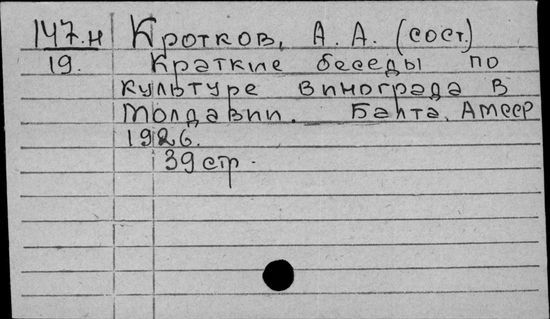 147.н Кротков, А. А. (сост.)
19. Краткие беседы по
культуре винограда в
Молдавии. Балта, Амсср
1926.
39 стр.